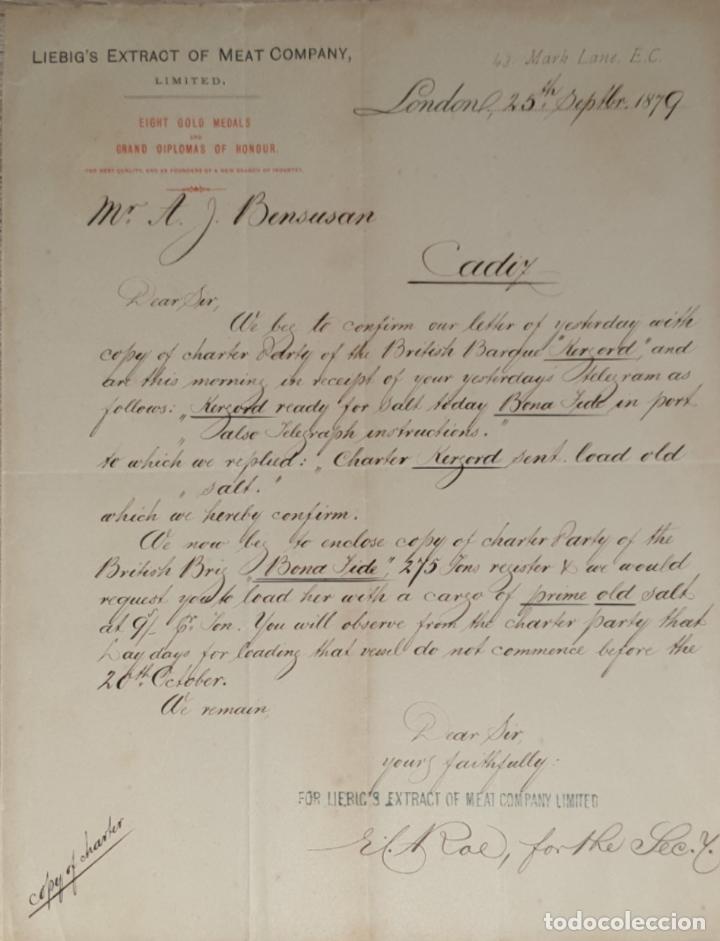 LIEBIG'S EXTRACT OF MEAT COMPANY,
LIMITED.
43. Mark Lane, E.C.
London, 25th Septbr. 1879
EIGHT GOLD MEDALS
AND
GRAND DIPLOMAS OF HONOUR.
FOR BEST QUALITY, AND AS FOUNDERS OF A NEW BRANCH OF INDUSTRY.
Mr. A. J. Bensusan
Cadiz
Dear Sir,
We beg to confirm our letter of yesterday with
copy of charter Party of the British Barque "Kerzord", and
are this morning in receipt of your yesterday's Telegram as
follows: "Kerzord ready for salt today Bona Fide in port
" also Telegraph instructions."
to which we replied: "Charter Kerzord sent. load old
" salt."
which we hereby confirm.
We now beg to enclose copy of charter Party of the
British Brig "Bona Fide", 275 Tons register & we would
request you to load her with a cargo of prime old salt
at 9/- Pr. Ton. You will observe from the charter party that
Lay days for loading that vessel do not commence before the
20th October.
We remain,
Dear Sir,
yours faithfully:
FOR LIEBIG'S EXTRACT OF MEAT COMPANY LIMITED
Roe, for the Sec.y.
copy of charter
todocoleccion